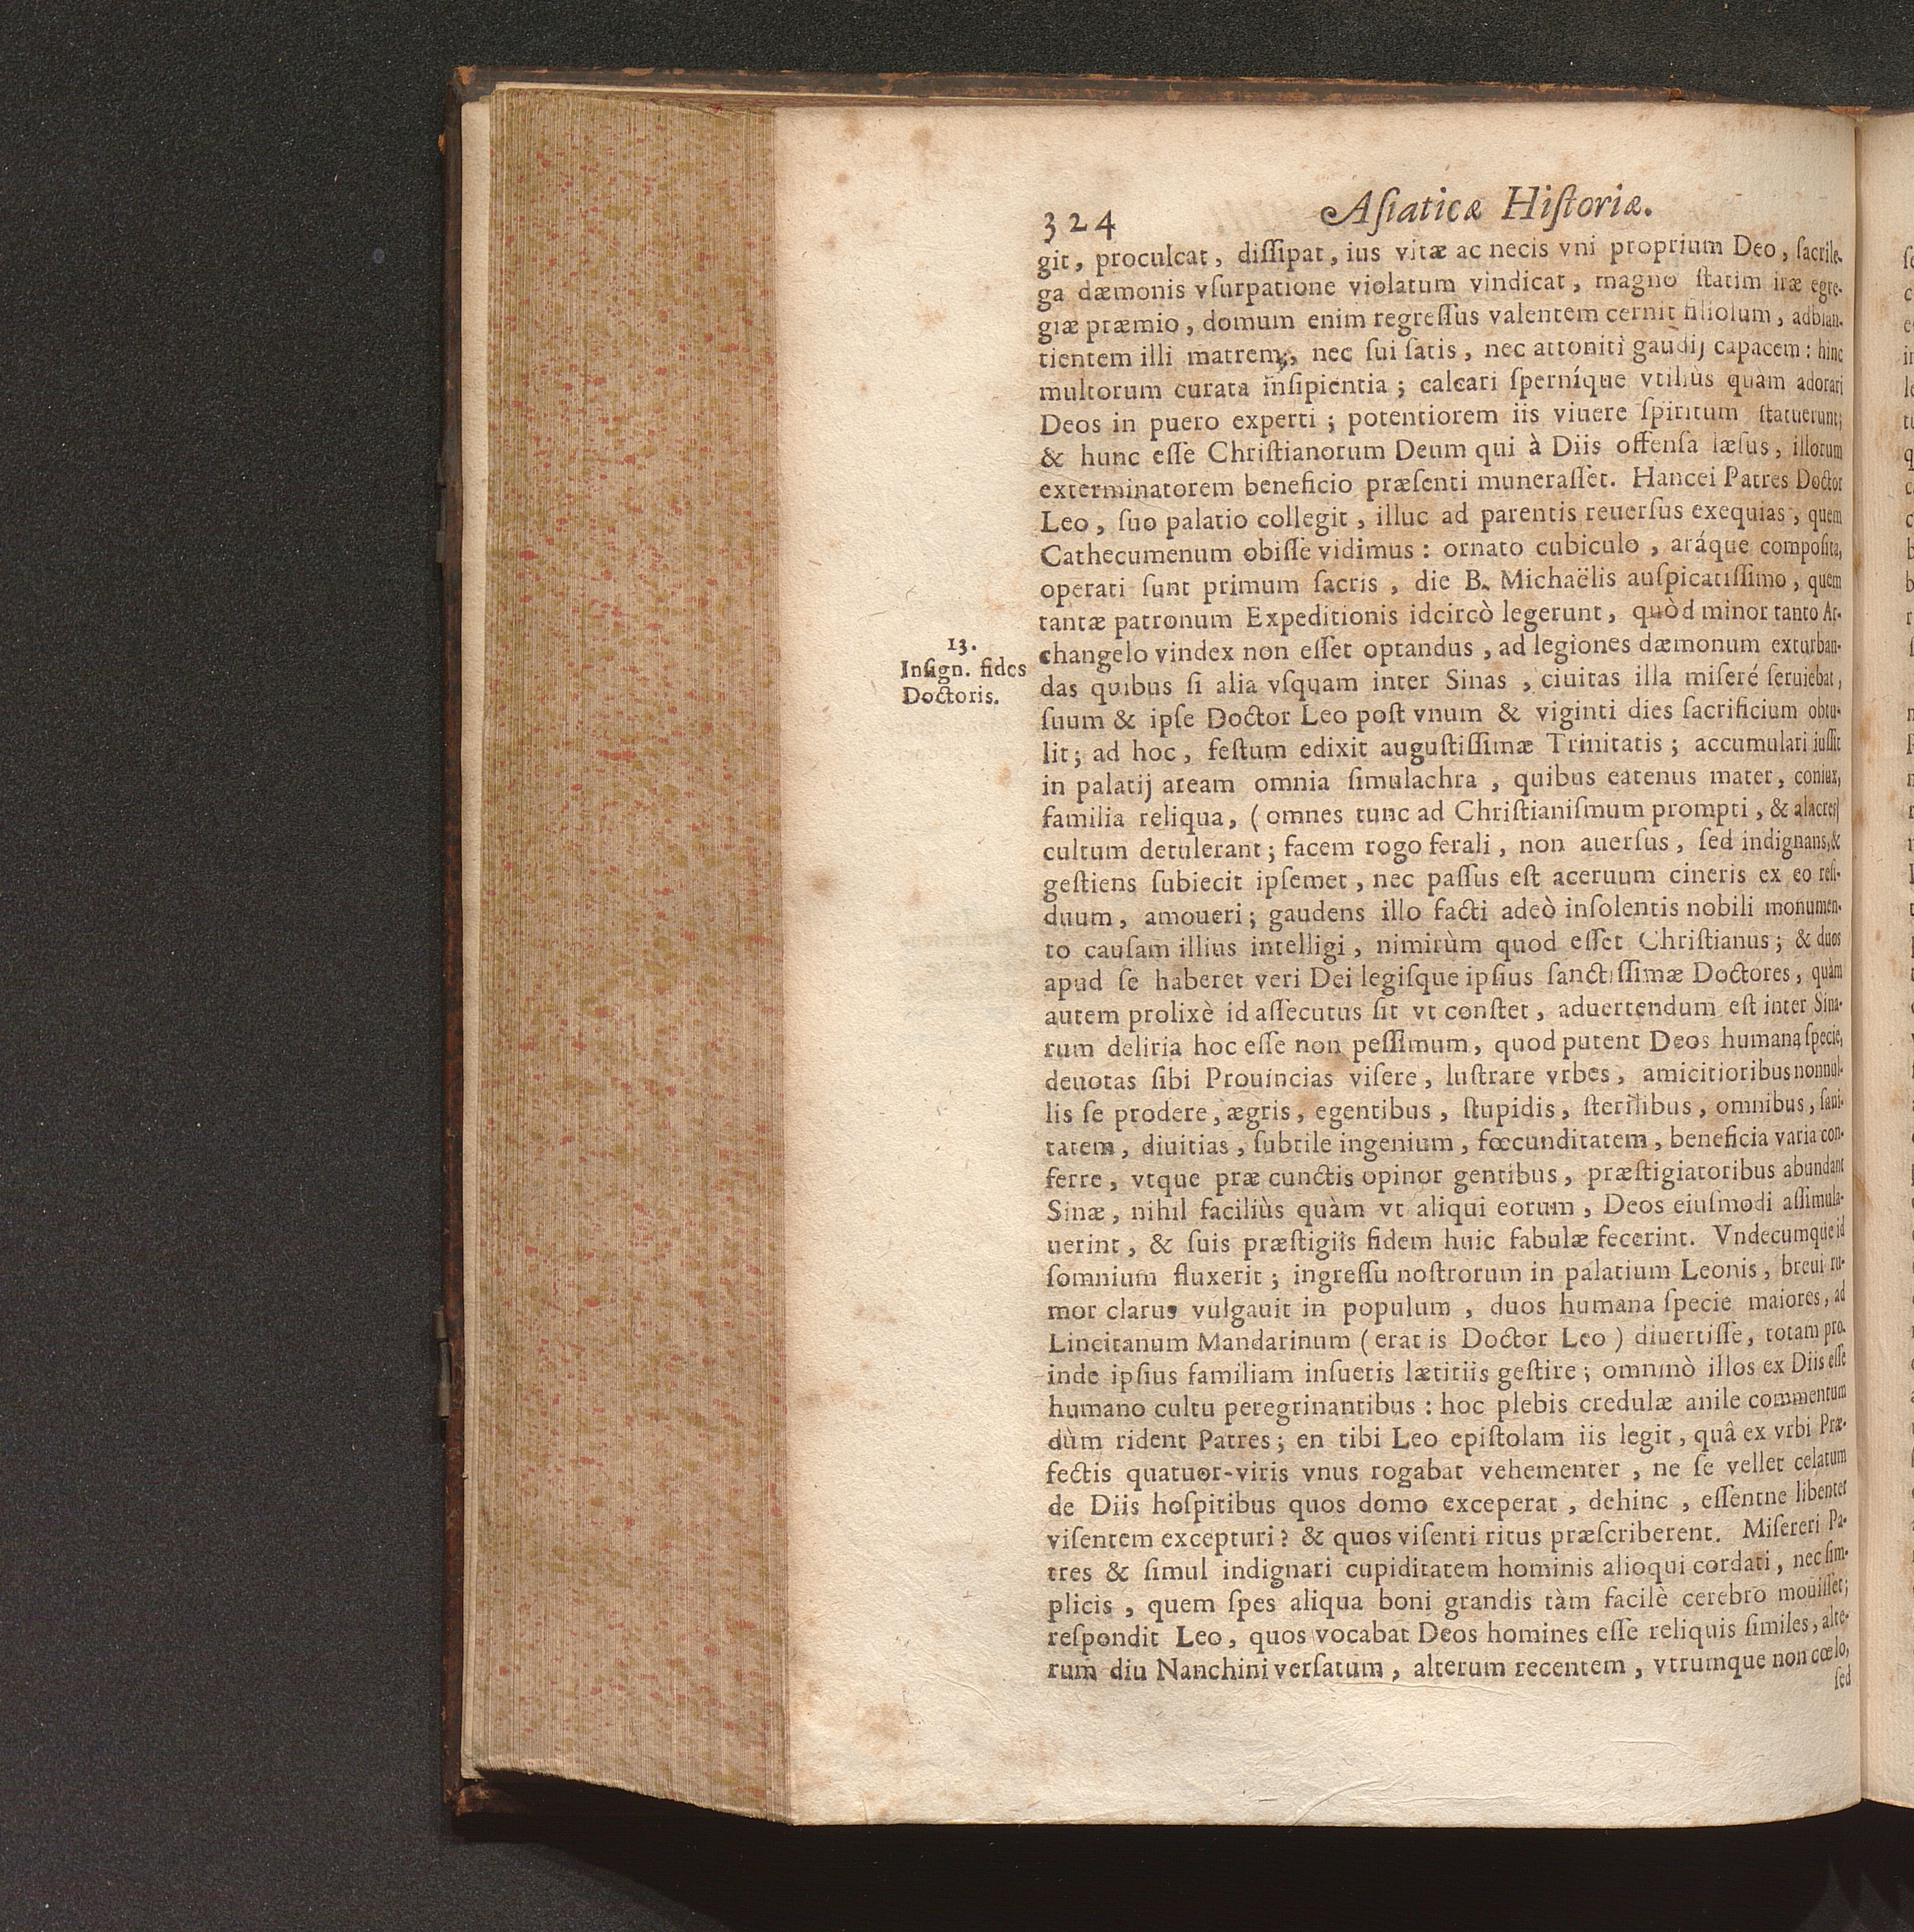 324
Aſiaticæ Hiſtoriæ.
git, proculcat, diſſipat, ius vitæ ac necis vni proprium Deo, ſacrile-
ga dæmonis vſurpatione violatum vindicat, magno ſtatim iræ egre-
giæ præmio, domum enim regreſſus valentem cernit filiolum, adblan-
tientem illi matrem, nec ſui ſatis, nec attoniti gaudij capacem: hinc
multorum curata inſipientia; calcari ſperníque vtiliùs quàm adorari
Deos in puero experti; potentiorem iis viuere ſpiritum ſtatuerunt;
& hunc eſſe Chriſtianorum Deum qui à Diis offenſa læſus, illorum
exterminatorem beneficio præſenti muneraſſet. Hancei Patres Doctor
Leo, ſuo palatio collegit, illuc ad parentis reuerſus exequias, quem
Cathecumenum obiſſe vidimus: ornato cubiculo, aráque compoſita,
operati ſunt primum ſacris, die B. Michaëlis auſpicatiſſimo, quem
tantæ patronum Expeditionis idcircò legerunt, quòd minor tanto Ar-
13.
Inſign. fides
Doctoris.
changelo vindex non eſſet optandus, ad legiones dæmonum exturban-
das quibus ſi alia vſquam inter Sinas, ciuitas illa miſeré ſeruiebat,
ſuum & ipſe Doctor Leo poſt vnum & viginti dies ſacrificium obtu-
lit; ad hoc, feſtum edixit auguſtiſſimæ Trinitatis; accumulari iuſſit
in palatij aream omnia ſimulachra, quibus eatenus mater, coniux,
familia reliqua, (omnes tunc ad Chriſtianiſmum prompti, & alacres)
cultum detulerant; facem rogo ferali, non auerſus, ſed indignans, &
geſtiens ſubiecit ipſemet, nec paſſus eſt aceruum cineris ex eo reſi-
duum, amoueri; gaudens illo facti adeò inſolentis nobili monumen-
to cauſam illius intelligi, nimirùm quod eſſet Chriſtianus; & duos
apud ſe haberet veri Dei legiſque ipſius ſanctiſſimæ Doctores, quàm
autem prolixè id aſſecutus ſit vt conſtet, aduertendum eſt inter Sina-
rum deliria hoc eſſe non peſſimum, quod putent Deos humana ſpecie,
deuotas ſibi Prouincias viſere, luſtrare vrbes, amicitioribus nonnul-
lis ſe prodere, ægris, egentibus, ſtupidis, ſterilibus, omnibus, ſani-
tatem, diuitias, ſubtile ingenium, fœcunditatem, beneficia varia con-
ferre, vtque præ cunctis opinor gentibus, præſtigiatoribus abundant
Sinæ, nihil faciliùs quàm vt aliqui eorum, Deos eiuſmodi aſſimula-
uerint, & ſuis præſtigiis fidem huic fabulæ fecerint. Vndecumque id
ſomnium fluxerit; ingreſſu noſtrorum in palatium Leonis, breui ru-
mor clarus vulgauit in populum, duos humana ſpecie maiores, ad
Lincitanum Mandarinum (erat is Doctor Leo) diuertiſſe, totam pro-
inde ipſius familiam inſuetis lætitiis geſtire; omninò illos ex Diis eſſe
humano cultu peregrinantibus: hoc plebis credulæ anile commentum
dùm rident Patres; en tibi Leo epiſtolam iis legit, quâ ex vrbi Præ-
fectis quatuor-viris vnus rogabat vehementer, ne ſe vellet celatum
de Diis hoſpitibus quos domo exceperat, dehinc, eſſentne libenter
viſentem excepturi? & quos viſenti ritus præſcriberent. Miſereri Pa-
tres & ſimul indignari cupiditatem hominis alioqui cordati, nec ſim-
plicis, quem ſpes aliqua boni grandis tàm facilè cerebro mouiſſet;
reſpondit Leo, quos vocabat Deos homines eſſe reliquis ſimiles, alte-
rum diu Nanchini verſatum, alterum recentem, vtrumque non cœlo,
ſed